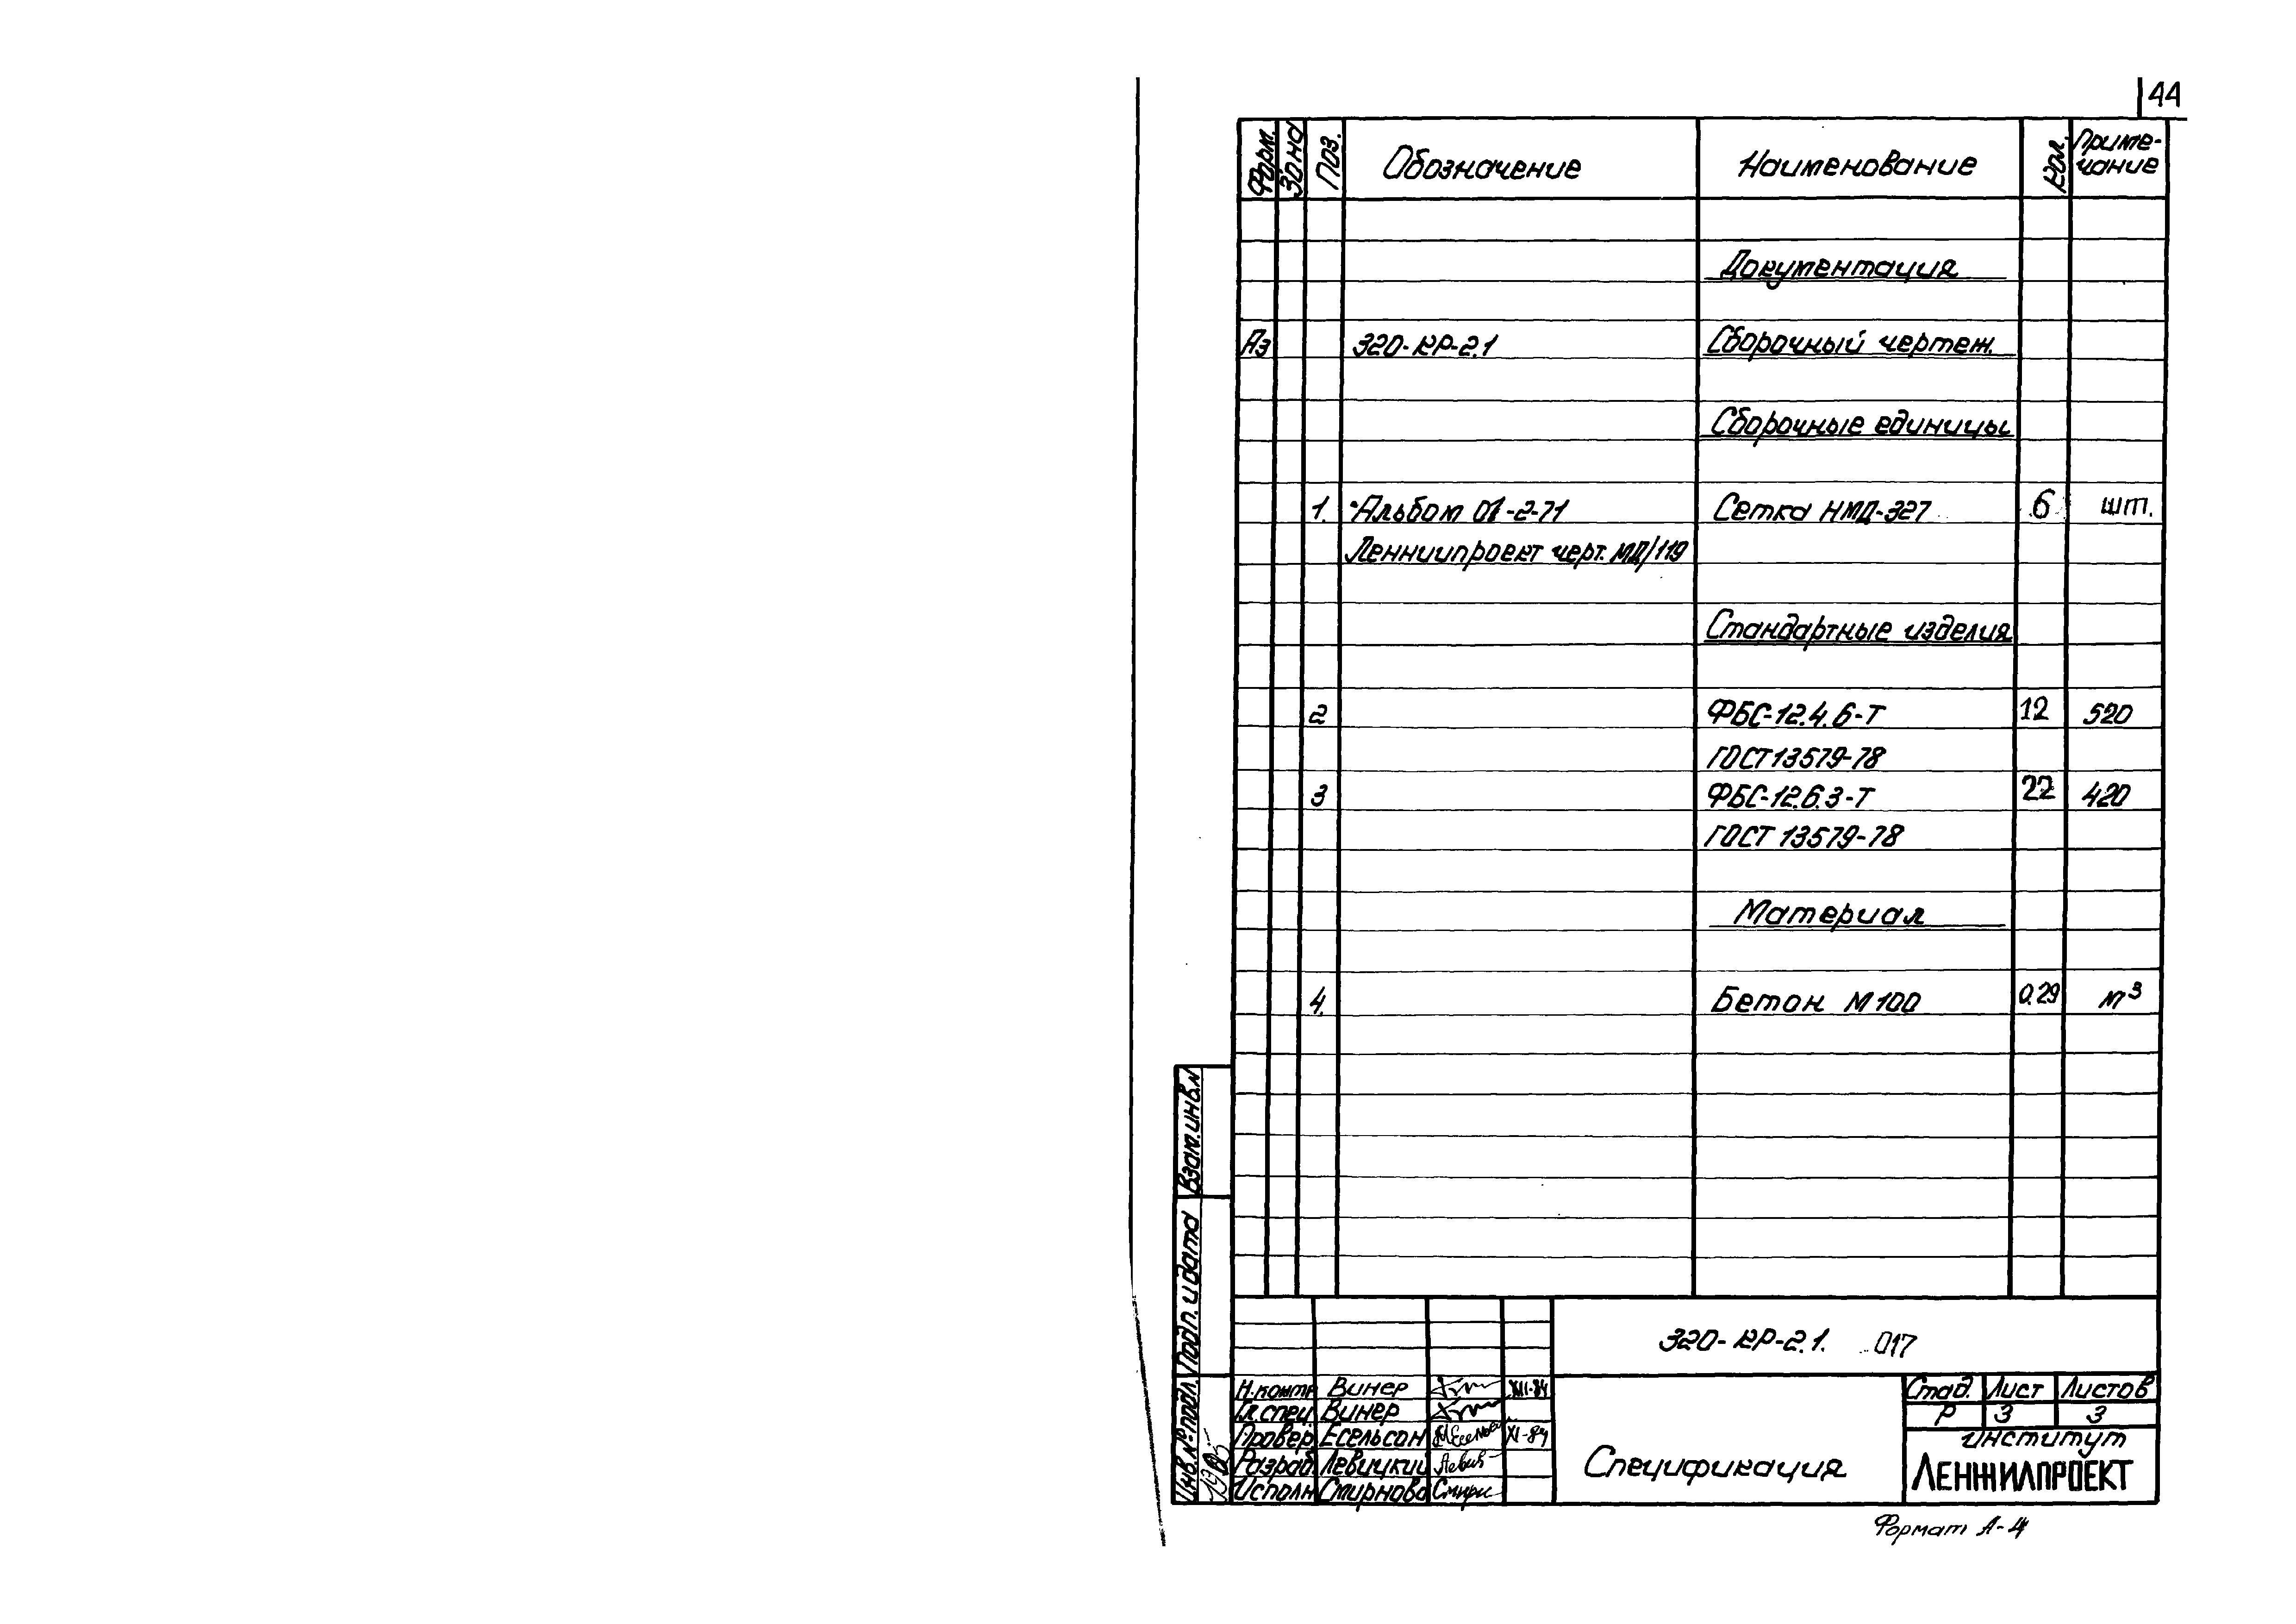 44
Форм. Зона Поз. Обозначение Наименование Кол. Приме-
чание
Документация
А3 320-КР-2.1 Сборочный чертеж.
Сборочные единицы
1. Альбом 01-2-71 Сетка НМД-327 6 шт.
Ленниипроект черт. МД/119
Стандартные изделия
2 ФБС-12.4.6-Т 12 520
ГОСТ 13579-78
3 ФБС-12.6.3-Т 22 420
ГОСТ 13579-78
Материал
4. Бетон М100 0.29 м³
Взам. инв. N
Подп. и дата
Инв. № подл.
320-КР-2.1. 017
Н.контр Винер XII-84
Гл.спец. Винер
Провер. Есельсон XI-84
Разраб. Левицкий
Исполн Смирнова
Спецификация
Стад. Лист Листов
Р 3 3
институт
ЛЕНЖИЛПРОЕКТ
Формат А-4